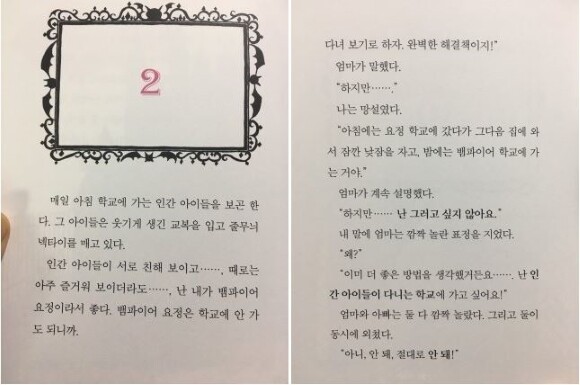 2
매일 아침 학교에 가는 인간 아이들을 보곤 한
다. 그 아이들은 웃기게 생긴 교복을 입고 줄무늬
넥타이를 매고 있다.
인간 아이들이 서로 친해 보이고……, 때로는
아주 즐거워 보이더라도……, 난 내가 뱀파이어
요정이라서 좋다. 뱀파이어 요정은 학교에 안 가
도 되니까.
다녀 보기로 하자. 완벽한 해결책이지!”
엄마가 말했다.
“하지만…….”
나는 망설였다.
“아침에는 요정 학교에 갔다가 그다음 집에 와
서 잠깐 낮잠을 자고, 밤에는 뱀파이어 학교에 가
는 거야.”
엄마가 계속 설명했다.
“하지만…… 난 그러고 싶지 않아요.”
내 말에 엄마는 깜짝 놀란 표정을 지었다.
“왜?”
“이미 더 좋은 방법을 생각했거든요……. 난 인
간 아이들이 다니는 학교에 가고 싶어요!”
엄마와 아빠는 둘 다 깜짝 놀랐다. 그리고 둘이
동시에 외쳤다.
“아니, 안 돼, 절대로 안 돼!”